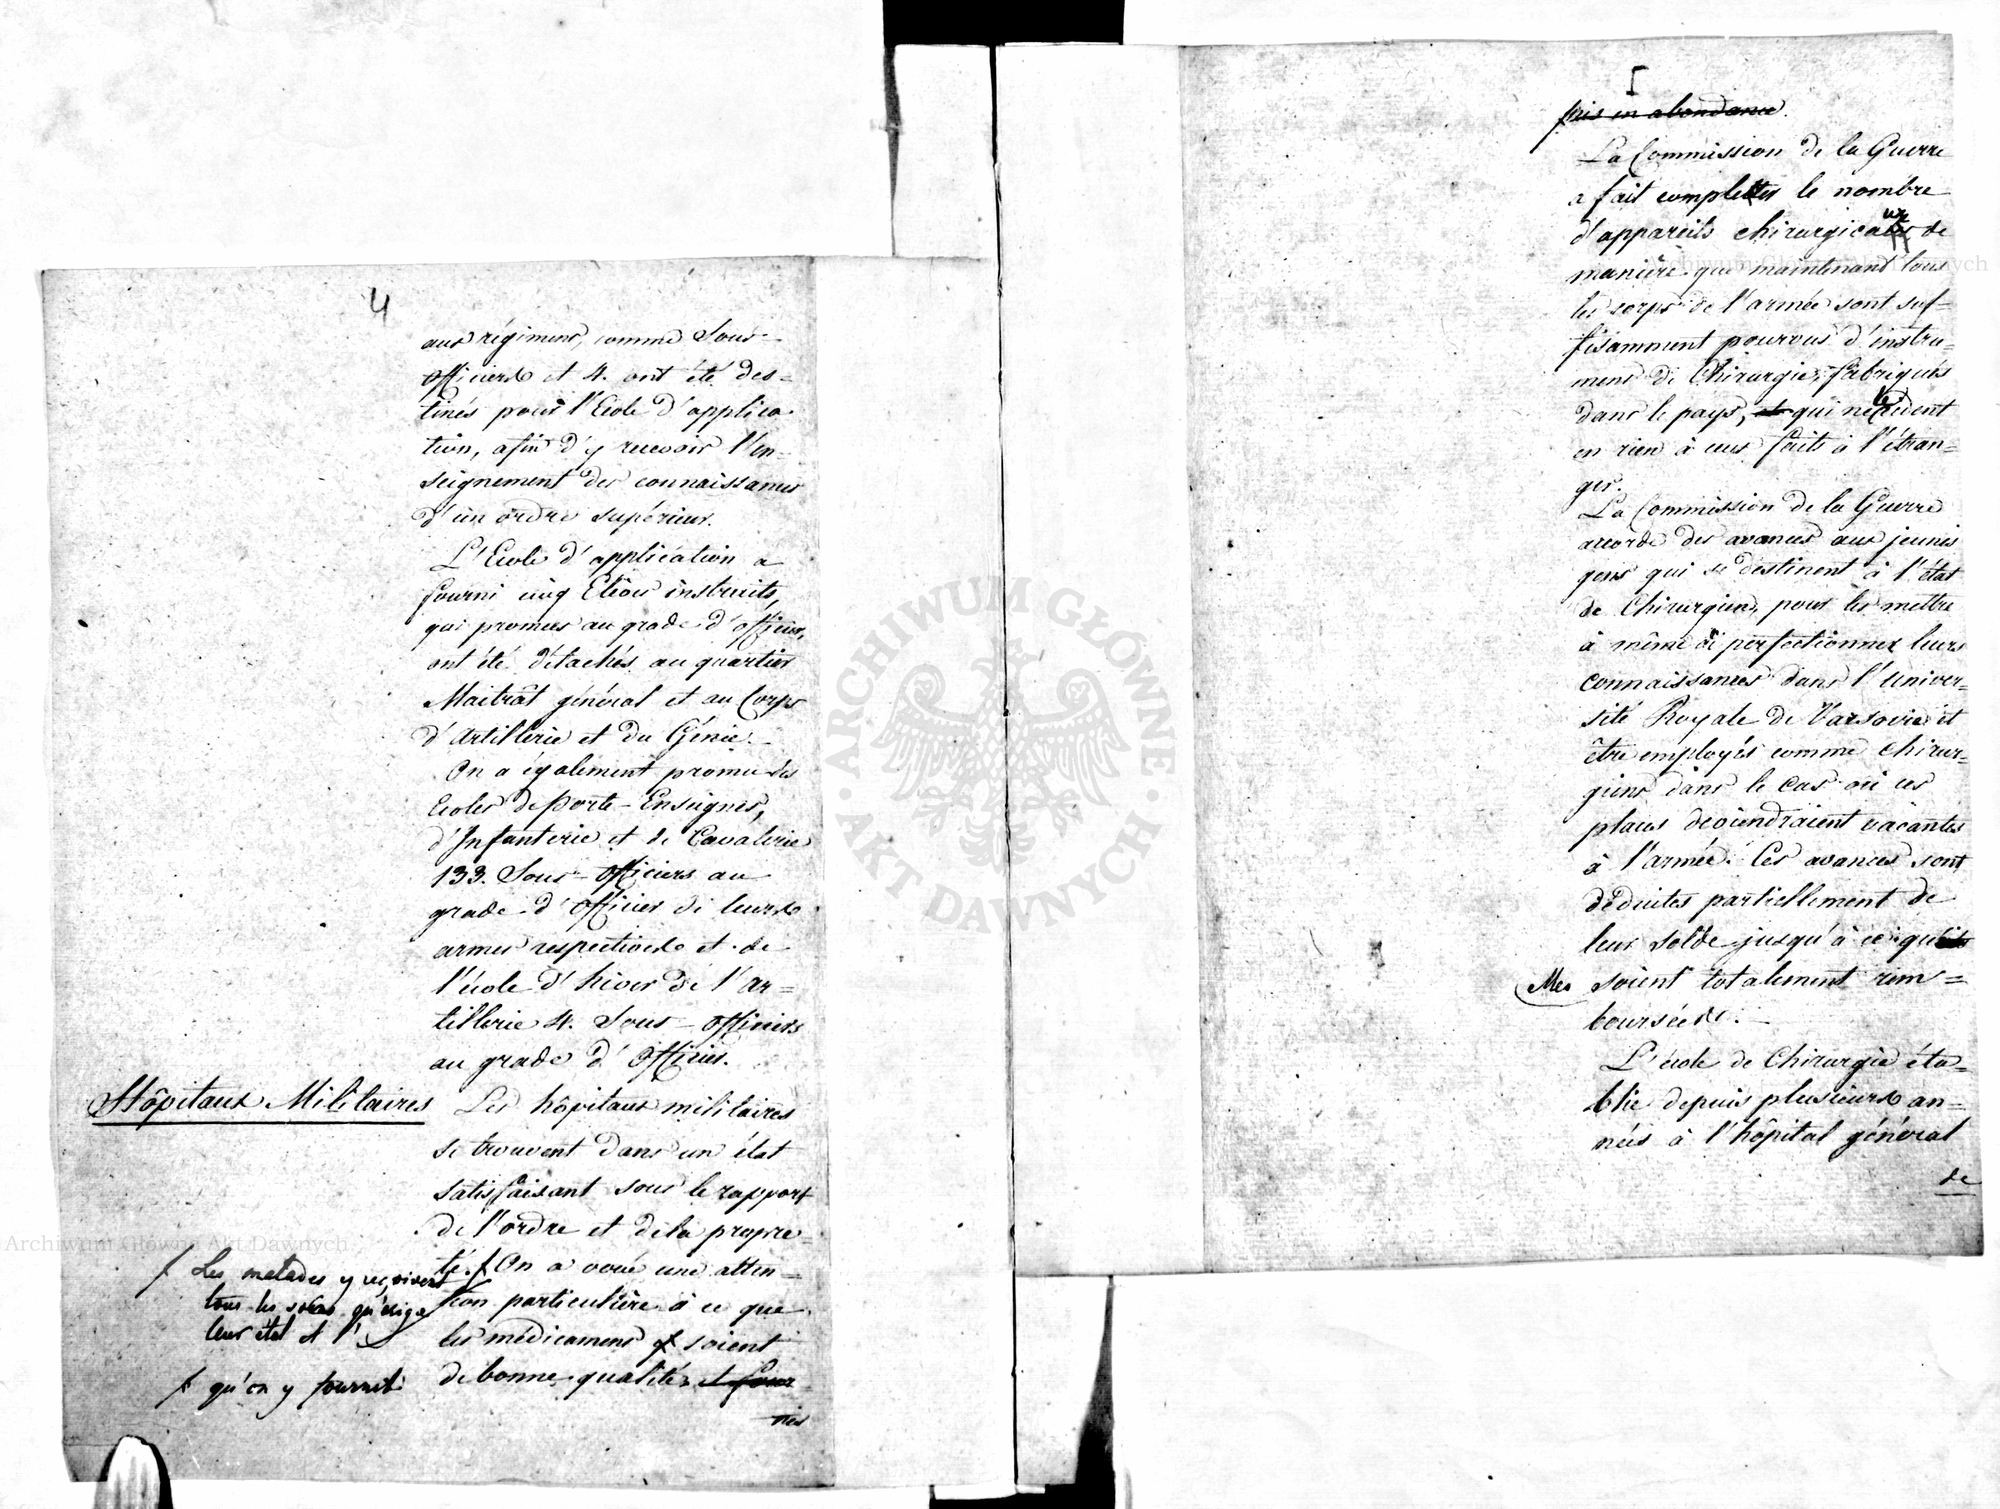 4
aux régimens, comme Sous-
Officiers et 4. ont été des=
tinés pour l'Ecole d'applica
tion, afin d'y recevoir l'en-
seignement des connaissances
d'un ordre supérieur.
L'Ecole d'application a
fourni cinq Elèves instruits,
qui promus au grade d'officier,
ont été détachés au quartier
Maitrât général et au Corps
d'Artillerie et du Génie.
On a également promu des
Ecoles de Porte-Enseignes,
d'Infanterie et de Cavalerie
133. Sous-Officiers au
grade d'Officier de leurs
armes respectives et de
l'école d'hiver de l'Ar=
tillerie 4. Sous-Officiers
au grade d'Officier.
Hôpitaux Militaires
Les hôpitaux militaires
se trouvent dans un état
satisfaisant sous le rapport
de l'ordre et de la propre-
té. On a voué une atten-
tion particulière à ce que
les médicamens soient
de bonne qualité, et four
nis
Les malades y reçoivent
tous les soins qu'exige
leur état et l'
qu'on y fournit
5
pris en abondance.
La Commission de la Guerre
a fait completter le nombre
d'appareils chirurgicaux de
manière que maintenant tous
les corps de l'armée sont suf=
fisamment pourvus d'instru=
mens de Chirurgie, fabriqués
dans le pays, et qui ne cèdent
en rien à ceux faits à l'étran=
ger.
La Commission de la Guerre
accorde des avances aux jeunes
gens qui se destinent à l'état
de Chirurgien, pour les mettre
à même de perfectionner leurs
connaissances dans l'Univer=
sité Royale de Varsovie et
être employés comme Chirur=
giens dans le cas où ces
places deviendraient vacantes
à l'armée. Ces avances sont
déduites partiellement de
leur solde jusqu'à ce qu'
elles soient totalement rem=
boursées.
L'école de Chirurgie éta=
blie depuis plusieurs an=
nées à l'hôpital général
de
ARCHIWUM GŁÓWNE · AKT DAWNYCH ·
Archiwum Główne Akt Dawnych
Archiwum Główne Akt Dawnych